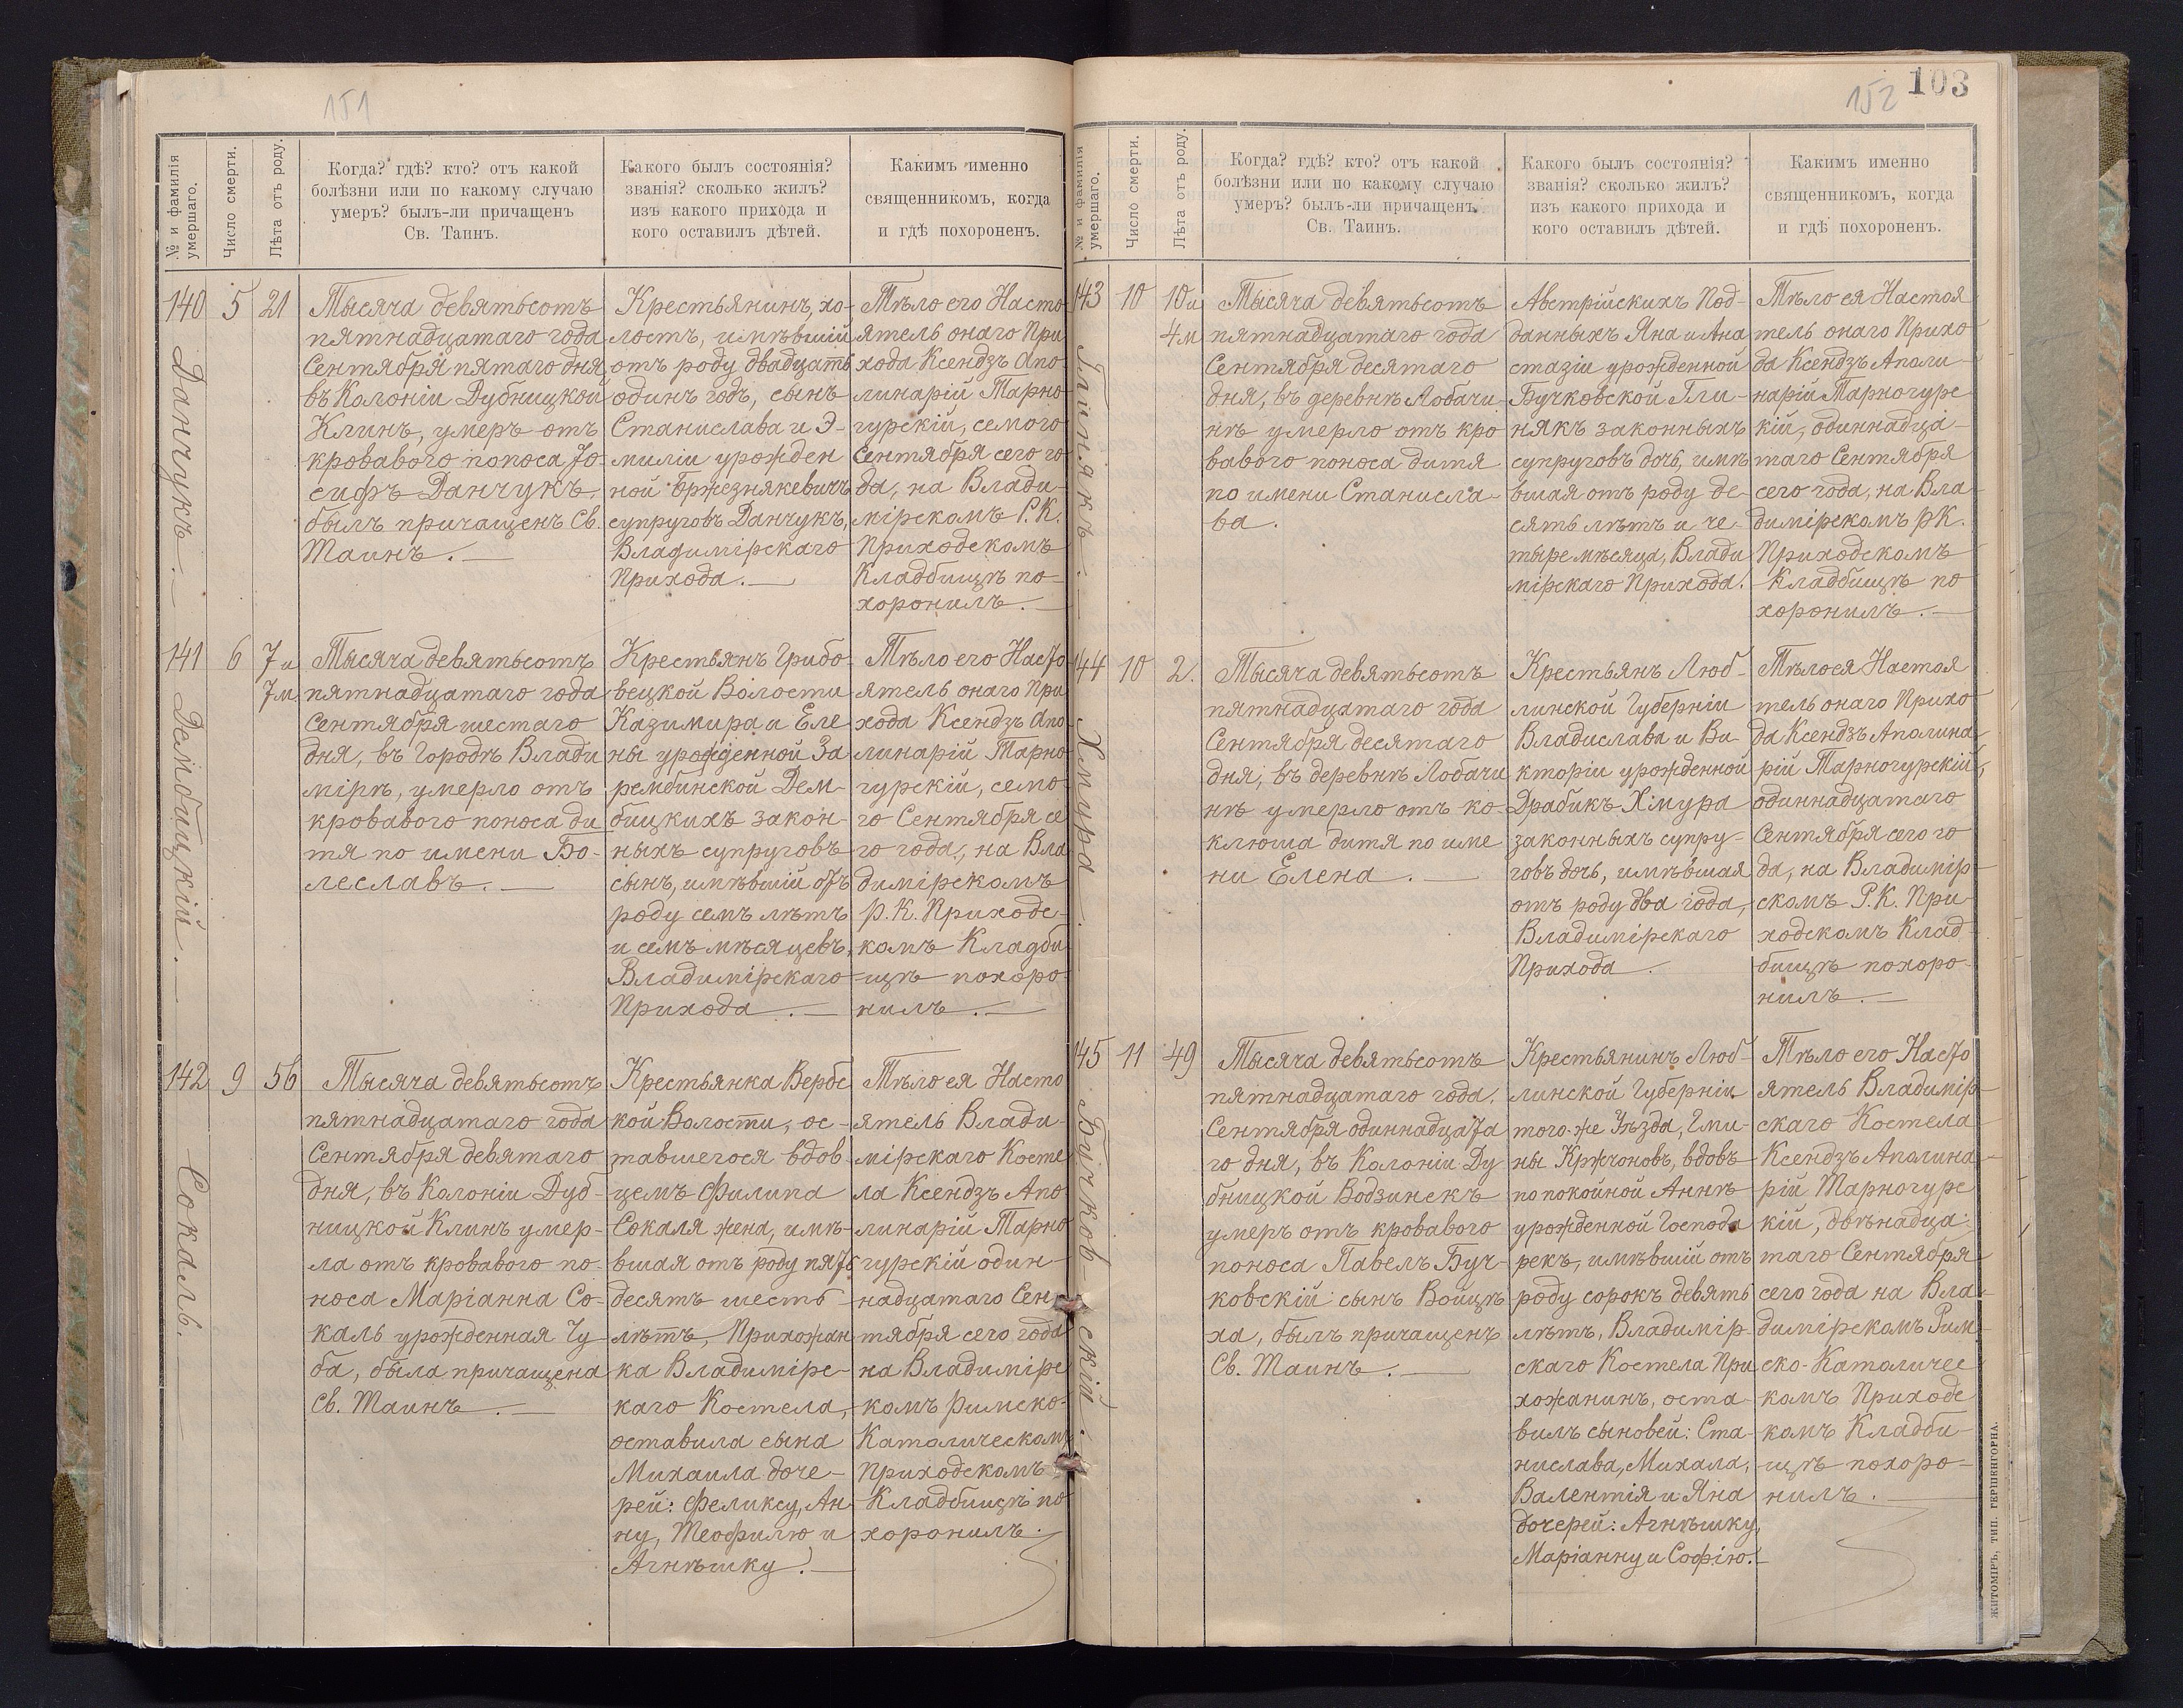 151
№ и фамилія умершаго.
Число смерти.
Лѣта отъ роду.
Когда? гдѣ? кто? отъ какой
болѣзни или по какому случаю
умеръ? былъ-ли причащенъ
Св. Таинъ.
Какого былъ состоянія?
званія? сколько жилъ?
изъ какого прихода и
кого оставилъ дѣтей.
Какимъ именно
священникомъ, когда
и гдѣ похороненъ.
140
Данчукъ.
5
21
Тысяча девятьсотъ
пятнадцатаго года
Сентября пятаго дня
въ Колоніи Дубницкой
Клинъ, умеръ отъ
кроваваго поноса Іо-
сифъ Данчукъ,
былъ причащенъ Св.
Таинъ.
Крестьянинъ, хо-
лостъ, имѣвшій
отъ роду двадцать
одинъ годъ, сынъ
Станислава и Э-
миліи урожден
ной Бржезнякевичъ
супруговъ Данчукъ,
Владимірскаго
Прихода.
Тѣло его Насто
ятель онаго При
хода Ксендзъ Апо-
линарій Тарно-
гурскій, семого
Сентября сего го
да, на Влади-
мірскомъ Р. К.
Приходскомъ
Кладбищѣ по-
хоронилъ.
141
Дембицкій.
6
7 и
7 м.
Тысяча девятьсотъ
пятнадцатаго года
Сентября шестаго
дня, въ Городѣ Влади
мірѣ, умерло отъ
кроваваго поноса ди
тя по имени Бо-
леславъ.
Крестьянъ Грибо-
вецкой Волости
Казимира и Еле
ны урожденной За
рембинской Дем-
бицкихъ закон-
ныхъ супруговъ
сынъ, имѣвшій отъ
роду семъ лѣтъ
и семъ мѣсяцевъ,
Владимірскаго
Прихода.
Тѣло его Насто
ятель онаго При
хода Ксендзъ Апо
линарій Тарно
гурскій, семо-
го Сентября се
го года, на Вла
димірскомъ
Р. К. Приходс-
комъ Кладби
щѣ похоро-
нилъ.
142
Сокаль.
9
56
Тысяча девятьсотъ
пятнадцатаго года
Сентября девятаго
дня, въ Колоніи Дуб-
ницкой Клинъ умер-
ла отъ кроваваго по-
носа Маріанна Со-
каль урожденная Чу
ба, была причащена
Св. Таинъ.
Крестьянка Вербс
кой Волости, ос-
тавшегося вдов
цемъ Филипа
Сокаля жена, имѣ-
вшая отъ роду пять
десятъ шесть
лѣтъ, Прихожан
ка Владимірс-
каго Костела,
оставила сына
Михаила доче-
рей: Феликсу, Ан
ну, Теофилю и
Агнѣшку.
Тѣло ея Насто
ятель Влади-
мірскаго Косте
ла Ксендзъ Апо
линарій Тарно
гурскій один-
надцатаго Сен
тября сего года
на Владимірс
комъ Римско-
Католическомъ
Приходскомъ
Кладбищѣ по
хоронилъ.
152
103
№ и фамилія умершаго.
Число смерти.
Лѣта отъ роду.
Когда? гдѣ? кто? отъ какой
болѣзни или по какому случаю
умеръ? былъ-ли причащенъ
Св. Таинъ.
Какого былъ состоянія?
званія? сколько жилъ?
изъ какого прихода и
кого оставилъ дѣтей.
Какимъ именно
священникомъ, когда
и гдѣ похороненъ.
143
Глинякъ.
10
10 и
4 м
Тысяча девятьсотъ
пятнадцатаго года
Сентября десятаго
дня, въ деревнѣ Лобачи-
нѣ умерло отъ кро
ваваго поноса дитя
по имени Станисла-
ва.
Австрійскихъ Под-
данныхъ Яна и Ана
стазіи урожденной
Бучковской Гли-
някъ законныхъ
супруговъ дочь, имѣ
вшая отъ роду де-
сять лѣтъ и че-
тыре мѣсяца, Влади
мірскаго Прихода.
Тѣло ея Настоя
тель онаго Прихо
да Ксендзъ Аполи-
нарій Тарногурс
кій, одиннадца-
таго Сентября
сего года, на Вла-
димірскомъ Р К.
Приходскомъ
Кладбищѣ по
хоронилъ.
144
Хмура.
10
2.
Тысяча девятьсотъ
пятнадцатаго года
Сентября десятаго
дня, въ деревнѣ Лобачи
нѣ умерло отъ ко-
клюша дитя по име
ни Елена.
Крестьянъ Люб-
линской Губерніи
Владислава и Ви-
кторіи урожденной
Драбикъ Хмура
законныхъ супру-
говъ дочь, имѣвшая
отъ роду два года,
Владимірскаго
Прихода.
Тѣло ея Настоя
тель онаго Прихо
да Ксендзъ Аполина
рій Тарногурскій,
одиннадцатаго
Сентября сего го
да, на Владимір-
скомъ Р. К. При
ходскомъ Клад-
бищѣ похоро-
нилъ.
145
Бучков-скій.
11
49
Тысяча девятьсотъ
пятнадцатаго года,
Сентября одиннадцата
го дня, въ Колоніи Ду
бницкой Водзинекъ
умеръ отъ кроваваго
поноса Павелъ Буч-
ковскій сынъ Войцѣ
ха, былъ причащенъ
Св. Таинъ.
Крестьянинъ Люб-
линской Губерніи
того-же Уѣзда, Гми-
ны Кржчоновъ, вдовъ
по покойной Аннѣ
урожденной Господа
рекъ, имѣвшій отъ
роду сорокъ девять
лѣтъ, Владимір
скаго Костела При
хожанинъ, оста-
вилъ сыновей: Ста-
нислава, Михала,
Валентія и Яна
дочерей: Агнѣшку,
Маріанну и Софію.
Тѣло его Насто
ятель Владимір-
скаго Костела
Ксендзъ Аполина-
рій Тарногурс
кій, двѣнадца-
таго Сентября
сего года на Вла-
димірскомъ Рим-
ско-Католичес
комъ Приходс
комъ Кладби-
щѣ похоро-
нилъ.
ЖИТОМІРЪ, ТИП. ГЕРШЕНГОРНА.